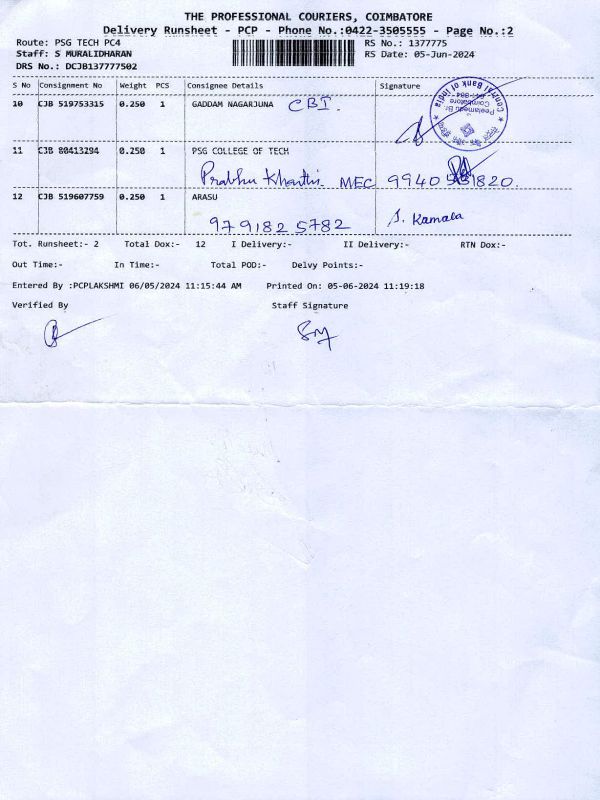 THE PROFESSIONAL COURIERS, COIMBATORE
Delivery Runsheet - PCP - Phone No.:0422-3505555 - Page No.:2
Route: PSG TECH PC4 RS No.: 1377775
Staff: S MURALIDHARAN RS Date: 05-Jun-2024
DRS No.: DCJB137777502
S No Consignment No Weight PCS Consignee Details Signature
10 CJB 519753315 0.250 1 GADDAM NAGARJUNA CBI.
Central Bank of India
Peelamedu Br.
Coimbatore
11 CJB 80413294 0.250 1 PSG COLLEGE OF TECH
Prabhu Khanthi MEC
12 CJB 519607759 0.250 1 ARASU
9791825782 S. Kamala
Tot. Runsheet:- 2 Total Dox:- 12 I Delivery:- II Delivery:- RTN Dox:-
Out Time:- In Time:- Total POD:- Delvy Points:-
Entered By :PCPLAKSHMI 06/05/2024 11:15:44 AM Printed On: 05-06-2024 11:19:18
Verified By Staff Signature